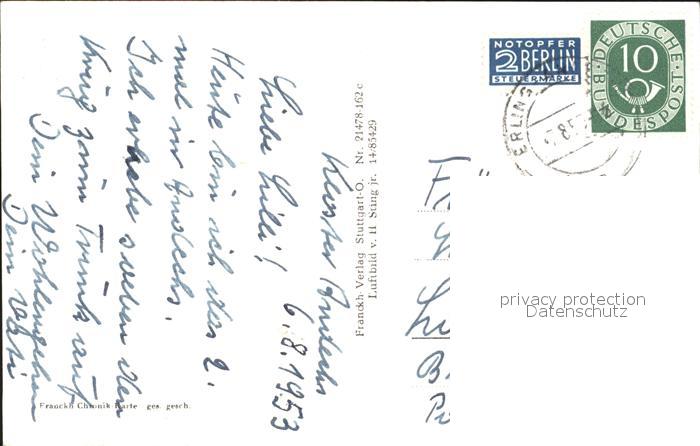 NOTOPFER
2 BERLIN
STEUERMARKE
DEUTSCHE
BUNDESPOST
10
ERLING
Kloster Andechs
6.8.1953
Liebe Lilli!
Heute bin ich das 2.
mal in Andechs.
Ich erhebe soeben den
Krug zum Trunk auf
Dein Wohlergehen
Dein
Franckh-Verlag Stuttgart-O. Nr. 21478-162 c
Luftbild v. H Sting jr. 14/85429
Franckh Chronik-Karte ges. gesch.
privacy protection
Datenschutz